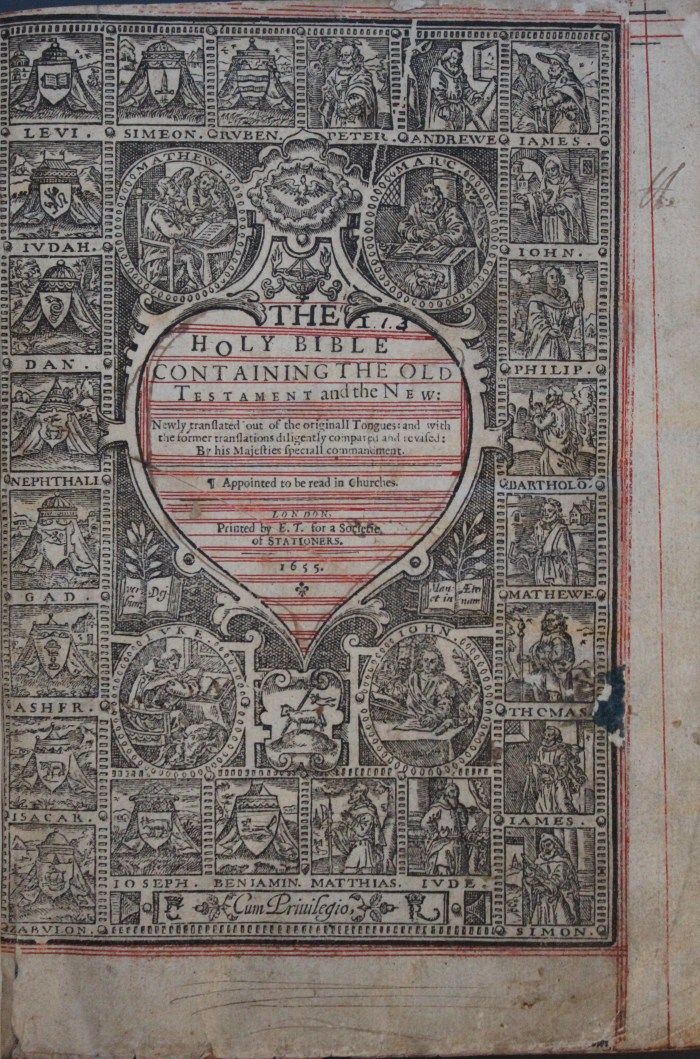 LEVI. SIMEON. RVBEN. PETER. ANDREWE IAMES.
MATHEW.
MARC.
IVDAH.
IOHN.
DAN.
PHILIP.
NEPHTHALI
BARTHOLO.
GAD.
MATHEWE.
ASHER.
THOMAS.
ISACAR.
IAMES.
ZABVLON.
SIMON.
THE
HOLY BIBLE
CONTAINING THE OLD
TESTAMENT and the NEW:
Newly tranſlated out of the originall Tongues: and with
the former tranſlations diligently compared and reviſed:
By his Majeſties ſpeciall commandment.
¶ Appointed to be read in Churches.
LONDON,
Printed by E. T. for a Societie
of STATIONERS.
1655.
Ver Dei
bum
Man Æter
et in num
LVKE.
IOHN
IOSEPH. BENIAMIN. MATTHIAS. IVDE.
Cum Priuilegio,